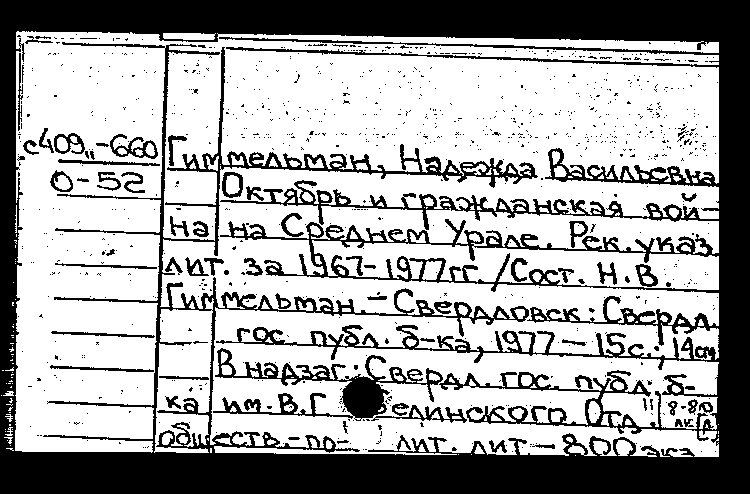 с409"-660
О-52
Гиммельман, Надежда Васильевна
Октябрь и гражданская вой-
на на Среднем Урале. Рек. указ.
лит. за 1967-1977гг. /Сост. Н.В.
Гиммельман. - Свердловск: Свердл.
гос. публ. б-ка, 1977 - 15с.; 14см
В надзаг.: Свердл. гос. публ. б-
ка им. В.Г. Белинского. Отд.
обществ.-по- лит. лит - 800 экз